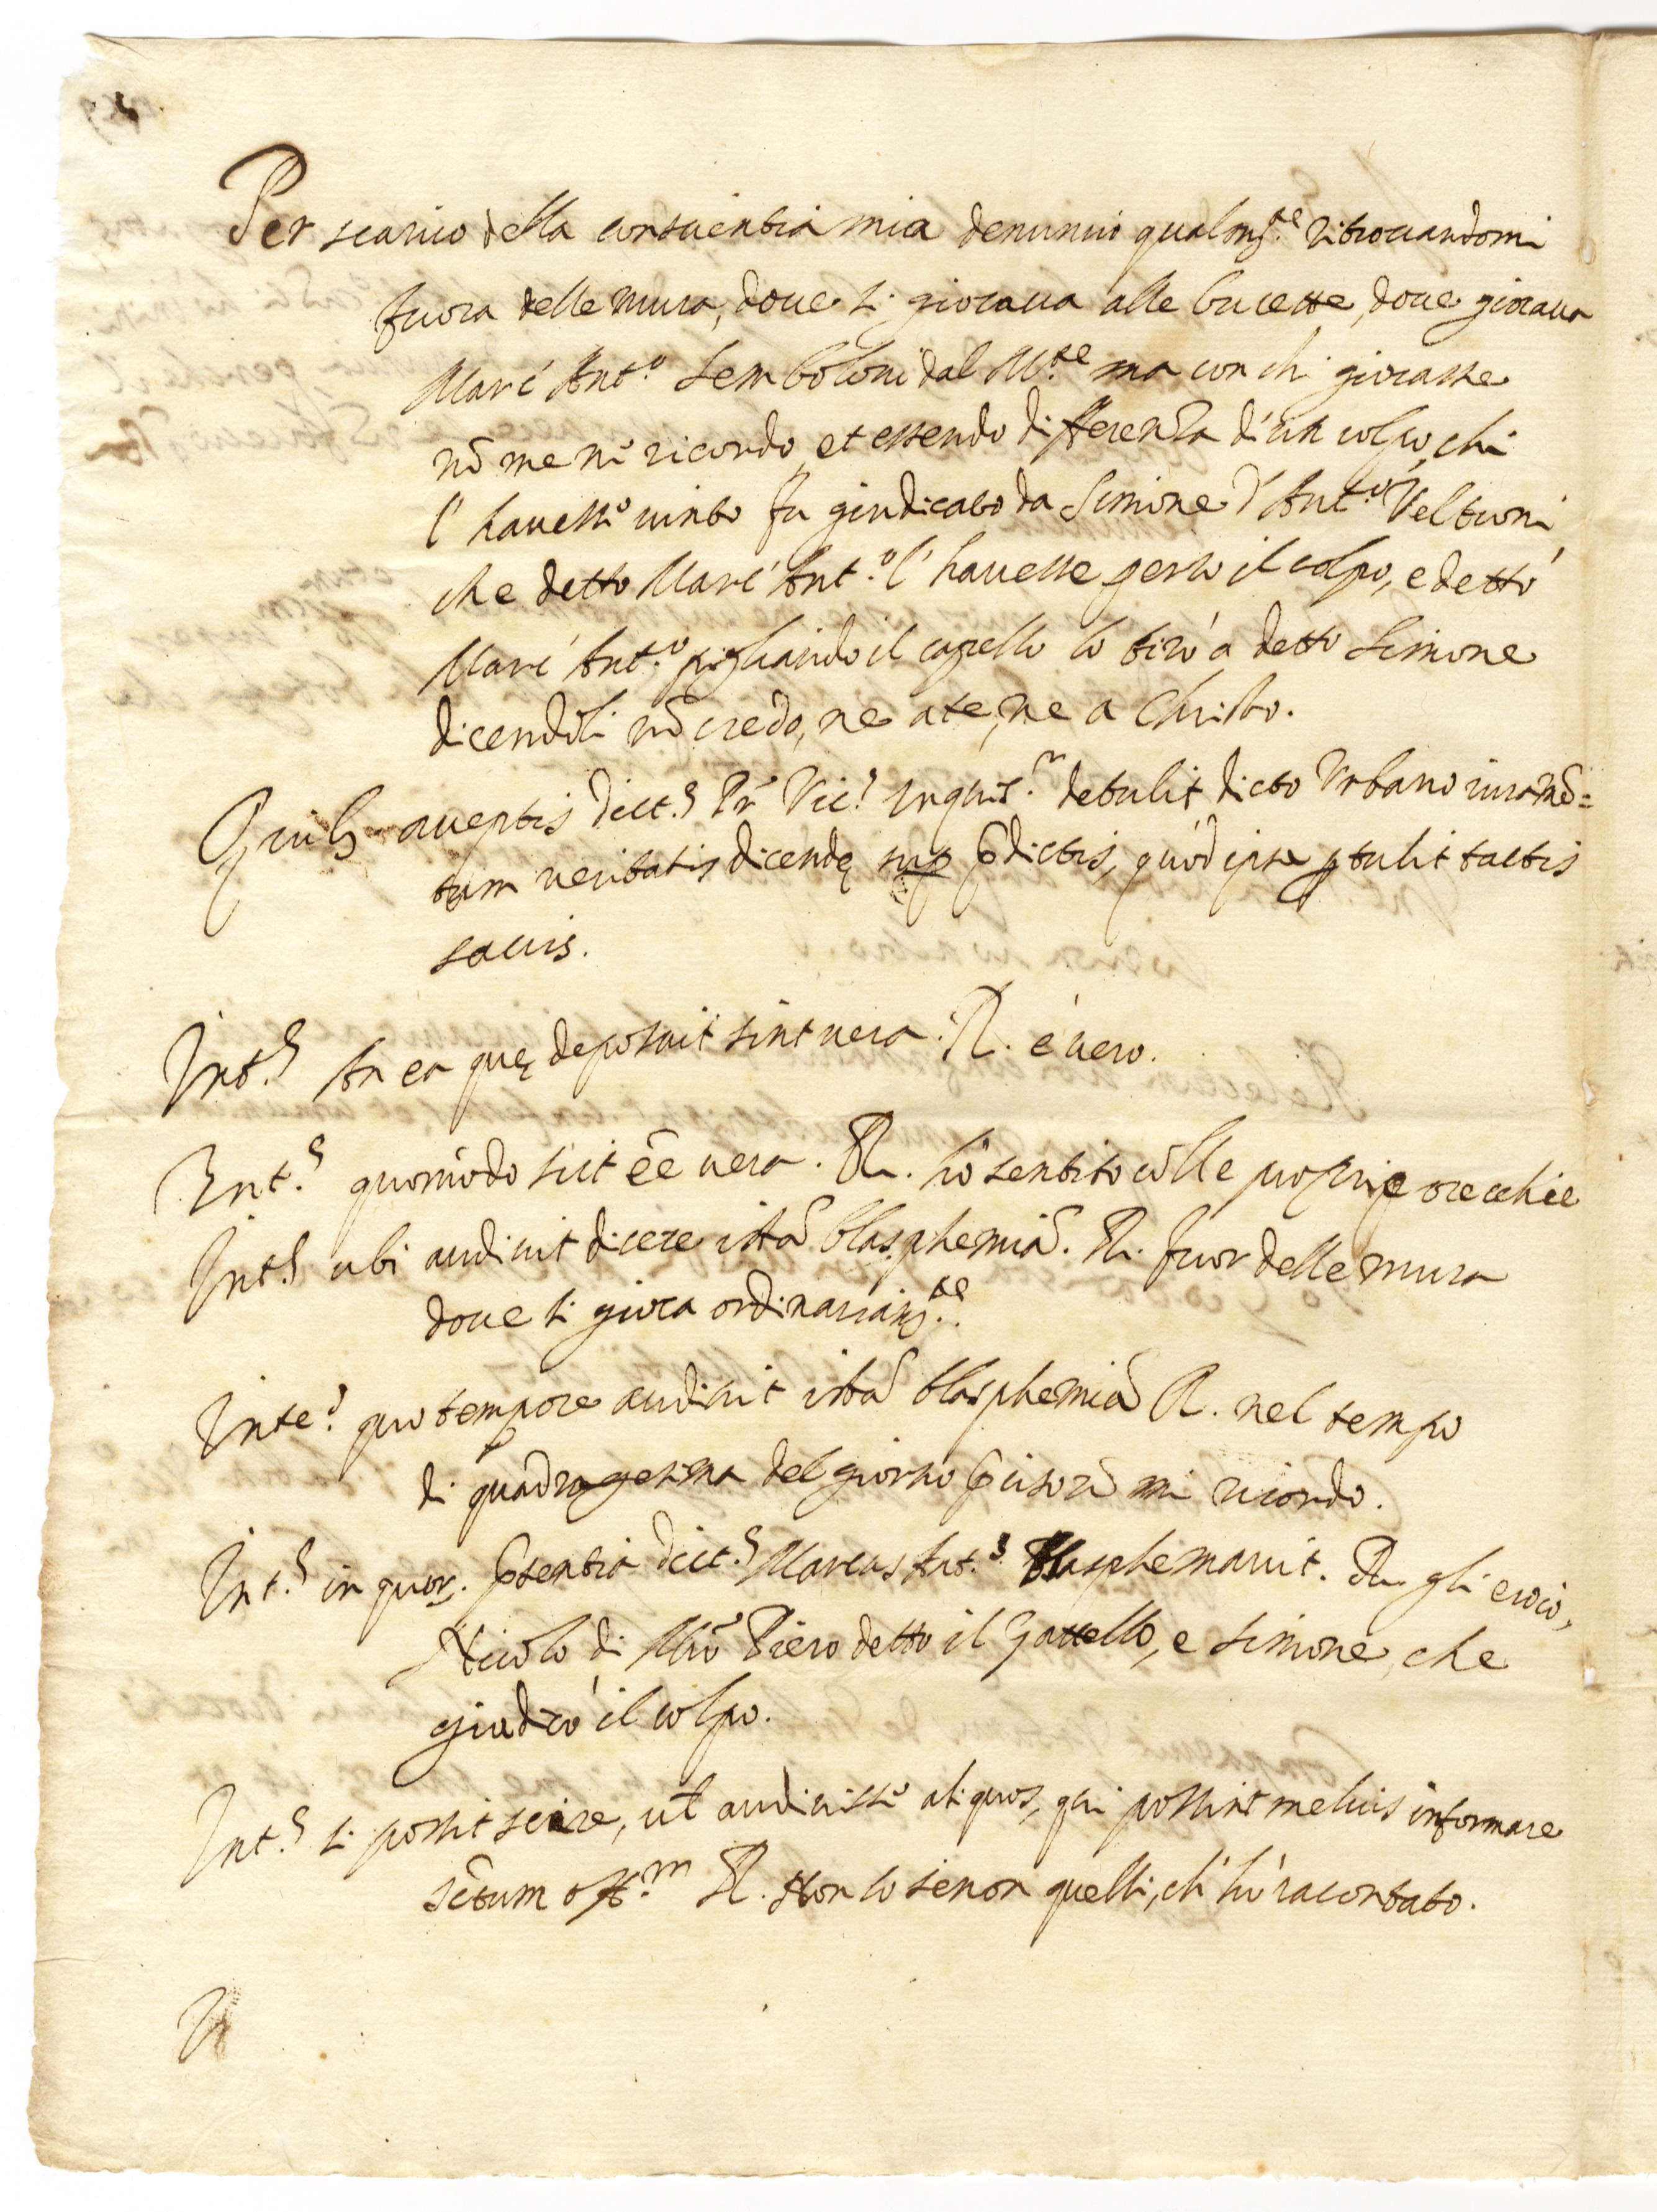 Per scarico della conscientia mia denuncio qualm.te ritrovandomi
fuora delle mura, dove si giocava alle bucette, dove giocava
Marc' Ant.o Semboloni dal M.te ma con chi giocasse
nō me ni ricordo, et essendo differenza d'un colpo, chi
l' havessi vinto fu giudicato da Simone d' Ant.o Veltroni,
che detto Marc' Ant.o l' havesse perso il colpo, e detto
Marc' Ant.o pigliando il capello lo tirò a detto Simone
dicendoli nō credo, ne a te, ne a Christo.
Quib. acceptis dict.s Pr Vic.s Inquis.r detulit dicto Urbano iuramē=
tum veritatis dicendę sup pdictis, quod ipse ptulit tactis
sacris.
Int.s An ea quę deposuit sint vera. R. è vero.
Int.s quomodo scit ēe vera. R. hò sentito cōlle proprie orecchie
Int.s ubi audivit dicere istā blasphemiā. R. fuor delle mura
dove si gioca ordinariam.te.
Inte.s quo tempore audivit istā blasphemiā R. nel tempo
di quadragesima del giorno pciso nō mi ricordo.
Int.s in quor. psentia dict.s Marcus Ant.s Blasphemavit. R. gli erocì,
Nicolo di Mrō Piero detto il Gattello, e Simone, che
giudicò il colpo.
Int.s si possit scire, vl audivissi aliquos, qui possint melius informare
sētum off.m R. Non lo se non quelli, ch' hò racontato.